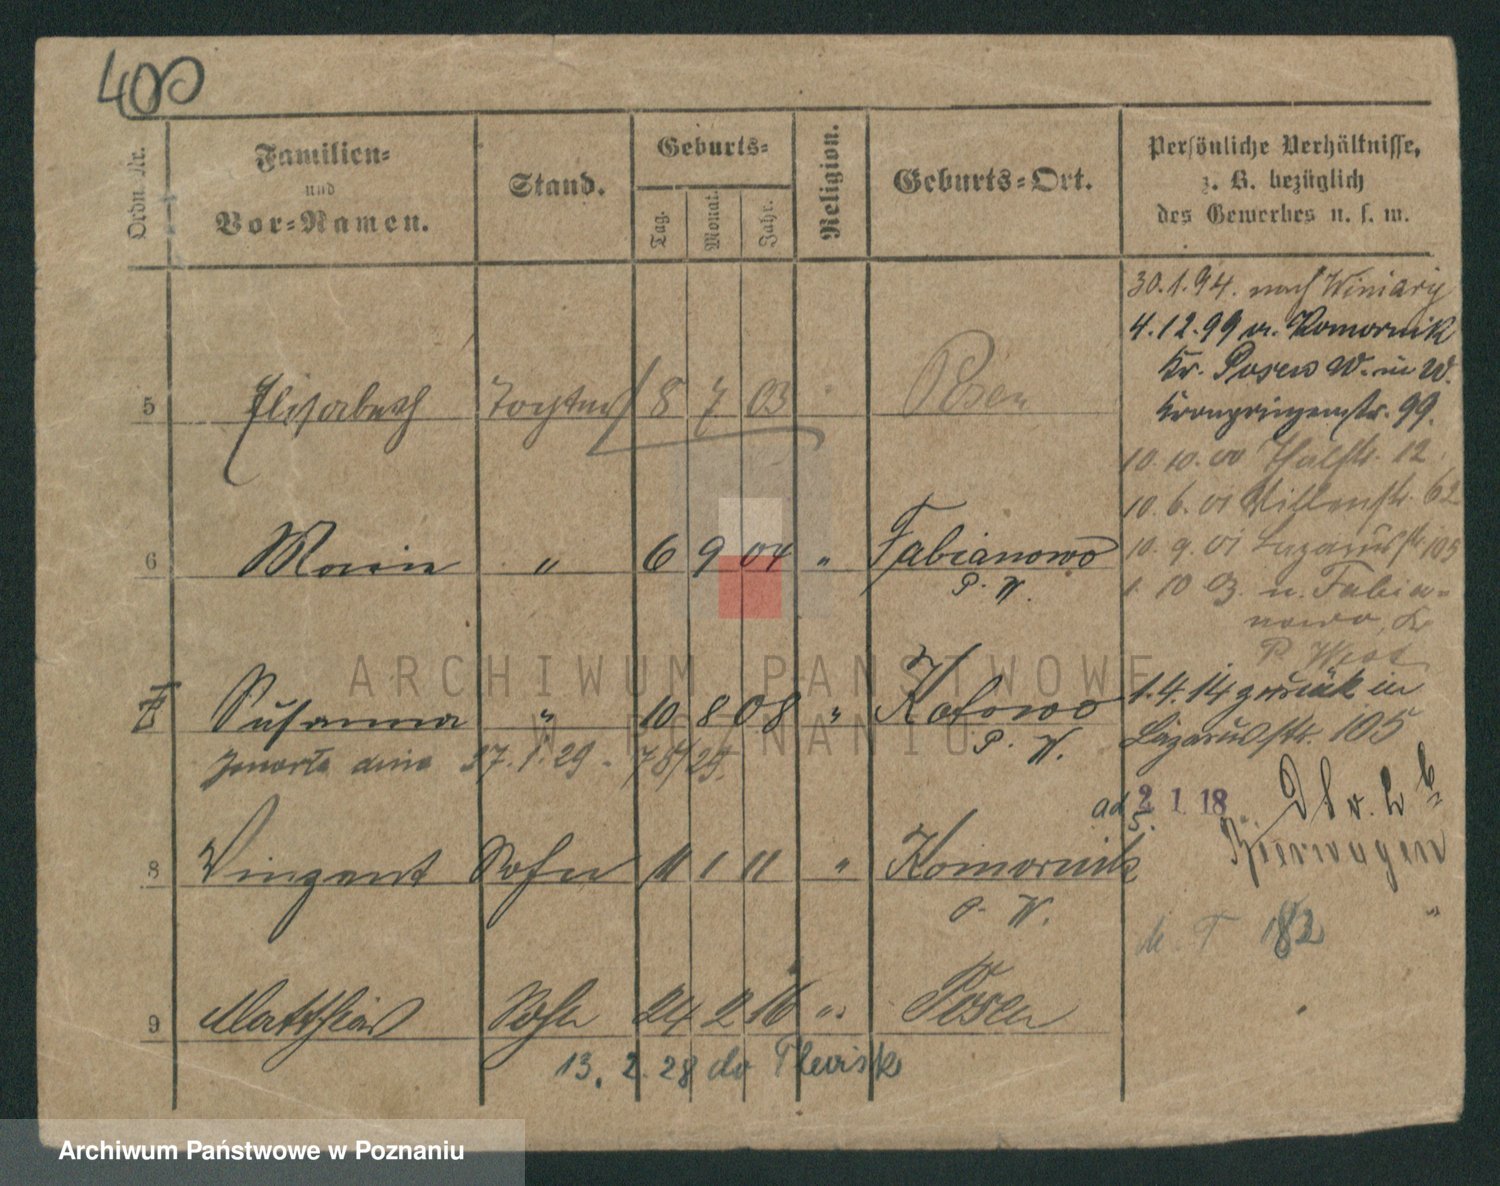 400
Ordn. Nr.
Familien-
und
Vor-Namen.
Stand.
Geburts-
Tag.
Monat.
Jahr.
Religion.
Geburts-Ort.
Persönliche Verhältnisse,
z. B. bezüglich
des Gewerbes u. s. w.
30.1.94. nach Winiary
4.12.99 n. Komornik
Kr. Posen W. in W.
Kronprinzenstr. 99.
10.10.00 Thalstr. 12.
10.6.01 Villenstr. 62
10.9.01 Lazarusstr. 105
1.10 03. n. Fabia-
nowo, Kr
P. West
1.4.14 zurück in
Lazarusstr. 105
5 Elisabeth Tochter 8 7 03 Posen
6 Maria " 6 9 04 " Fabianowo
P. W.
7 Susanna " 10 8 08 " Kotowo
P. W.
Zmarła dnia 1.29. 78/29.
ad 2 1 18
8 Vinzent Sohn 11 1 11 " Komornik
P. W.
Bierwagen
182
9 Matthias Sohn 24 2 16 " Posen
13. 2. 28 do Plewisk
ARCHIWUM PAŃSTWOWE
W POZNANIU
Archiwum Państwowe w Poznaniu